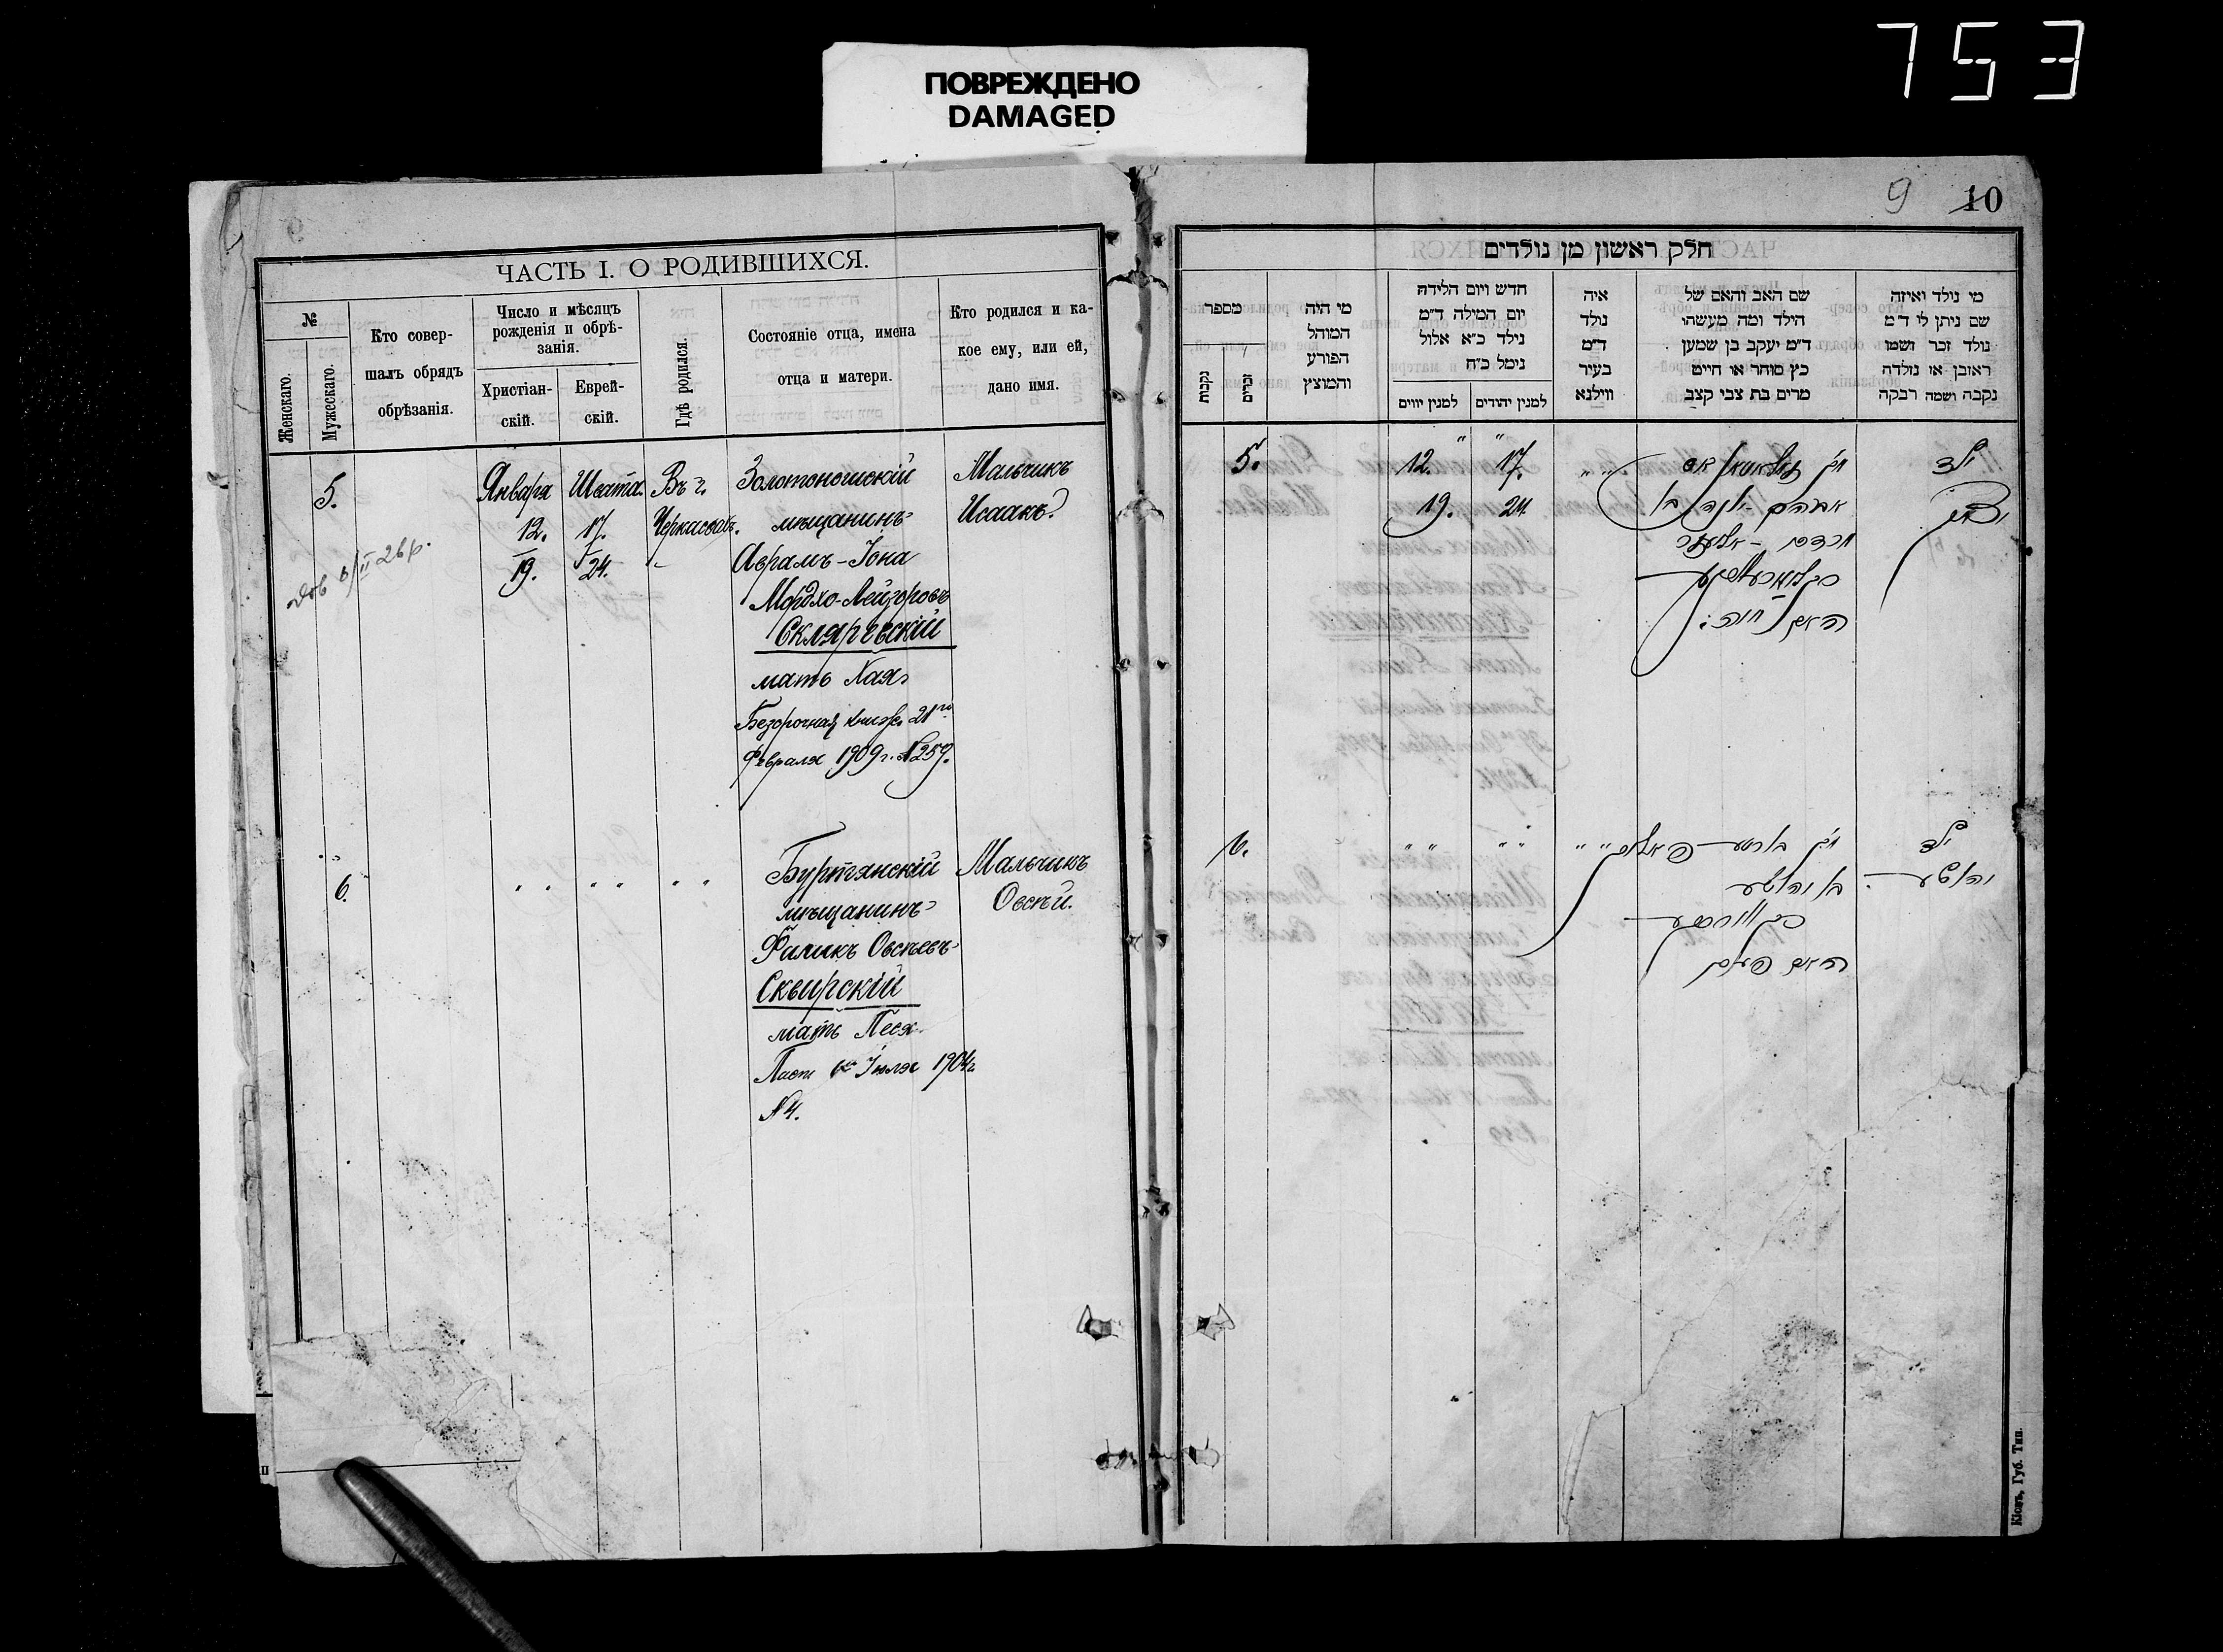 753
ПОВРЕЖДЕНО
DAMAGED
ЧАСТЬ I. О РОДИВШИХСЯ.
№
Женскаго.
Мужескаго.
Кто совер-
шалъ обрядъ
обрѣзанія.
Число и мѣсяцъ
рожденія и обрѣ-
занія.
Христіан-
скій.
Еврей-
скій.
Гдѣ родился.
Состояніе отца, имена
отца и матери.
Кто родился и ка-
кое ему, или ей,
дано имя.
5.
Января
12.
19.
Шевата.
17.
24.
Въ г.
Черкассахъ.
Золотоношскій
мѣщанинъ
Аврамъ-Іона
Мордхо-Лейзоровъ
Скляревскій
мать Хая
Безсрочная книжка 21го
Февраля 1909 г. №259.
Мальчикъ
Исаакъ.
6.
" "
" "
" "
Буртянскій
мѣщанинъ
Фаликъ Овсѣевъ
Сквирскій
мать Песя
Пасп. Іюля 1904 г.
№4.
Мальчикъ
Овсѣй.
9 10
חלק ראשון מן נולדים
מספר
נקבות
זכרים
מי היה
המוהל
הפורע
והמוצץ
חדש ויום הלידה
יום המילה ד״מ
נילד כ״א אלול
נימל כ״ח
למנין יווים
למנין יהודים
איה
נולד
ד״מ
בעיר
ווילנא
שם האב והאם של
הילד ומה מעשהו
ד״מ יעקב בן שמען
כץ סוחר או חייט
מרים בת צבי קצב
מי נולד ואיזה
שם ניתן לו ד״מ
נולד זכר ושמו
ראובן או נולדה
נקבה ושמה רבקה
5.
" "
12. 17.
19. 24.
" "
אברהם יונה בן
מרדכי אליעזר
האם חיה:
ילד
יצחק
6.
" "
" "
" "
בן יהושע
האם פעסי
ילד
יהושע
Кіевъ, Губ. Тип.